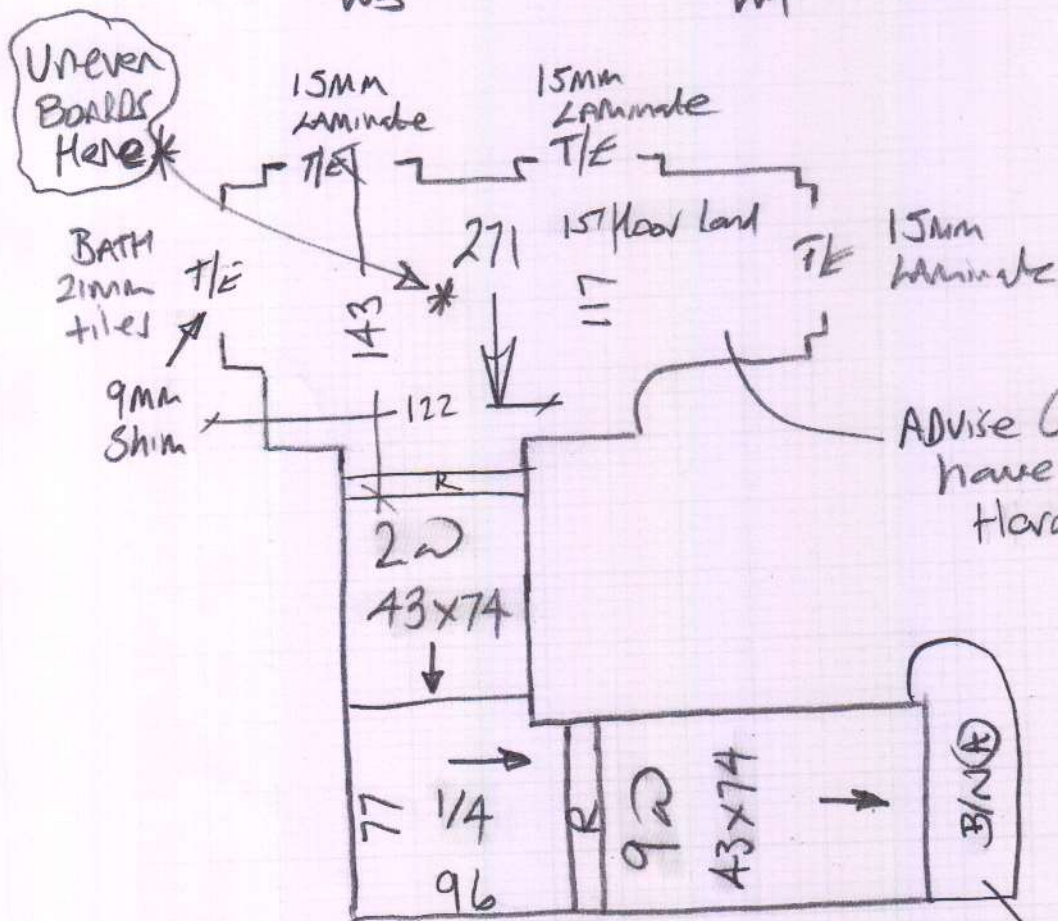 Uneven
BOARDS
Here *
15mm
LAMinate
T/E
15mm
LAMinate
T/E
BATH
21mm
tiles
T/E
9mm
Shim
143
*
271
1st floor Land
117
T/E
15mm
LAMinate
122
ADvise
have
R
2
43x74
77
1/4
96
R
9
43x74
B/N